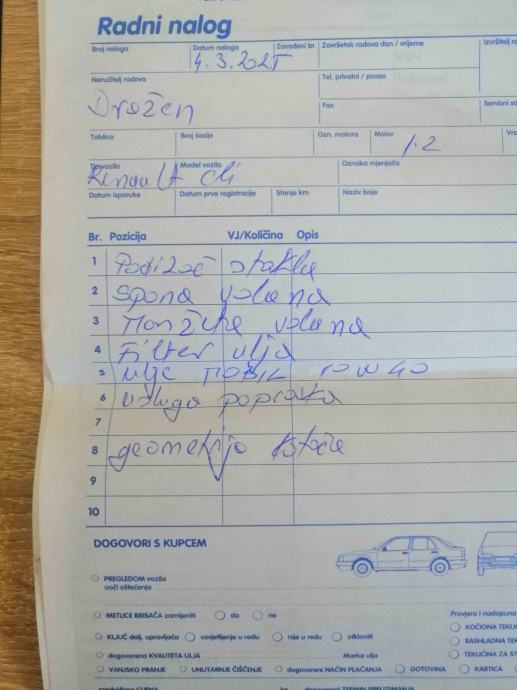 Radni nalog
Broj naloga Datum naloga Zavedeni br. Završetak radova dan / vrijeme
4.3.2025
Naručitelj radova Tel. privatni / posao
Dražen
Fax Servisni
Tablica Broj šasije Ozn. motora Motor
1.2
Tip vozila Model vozila Oznaka mjenjača
Renault Cli
Datum isporuke Datum prve registracije Stanje km Naziv boje
Br. Pozicija VJ/Količina Opis
1 Podizač stakla
2 Spona volana
3 Manžetne volana
4 Filter ulja
5 ulje MOBIL 10W40
6 usluga popravka
7
8 geometrija
9
10
DOGOVORI S KUPCEM
PREGLEDOM vozila
uoči oštećenja
METLICE BRISAČA zamijeniti da ne Provjera i nadopuna
KLJUČ dalj. upravljača osvjetljenje u redu nije u redu otkloniti KOČIONA TEKU
RASHLADNA TEK
dogovorena KVALITETA ULJA Marka ulja TEKUĆINA ZA ST
VANJSKO PRANJE UNUTARNJE ČIŠĆENJE dogovoreni NAČIN PLAĆANJA GOTOVINA KARTICA